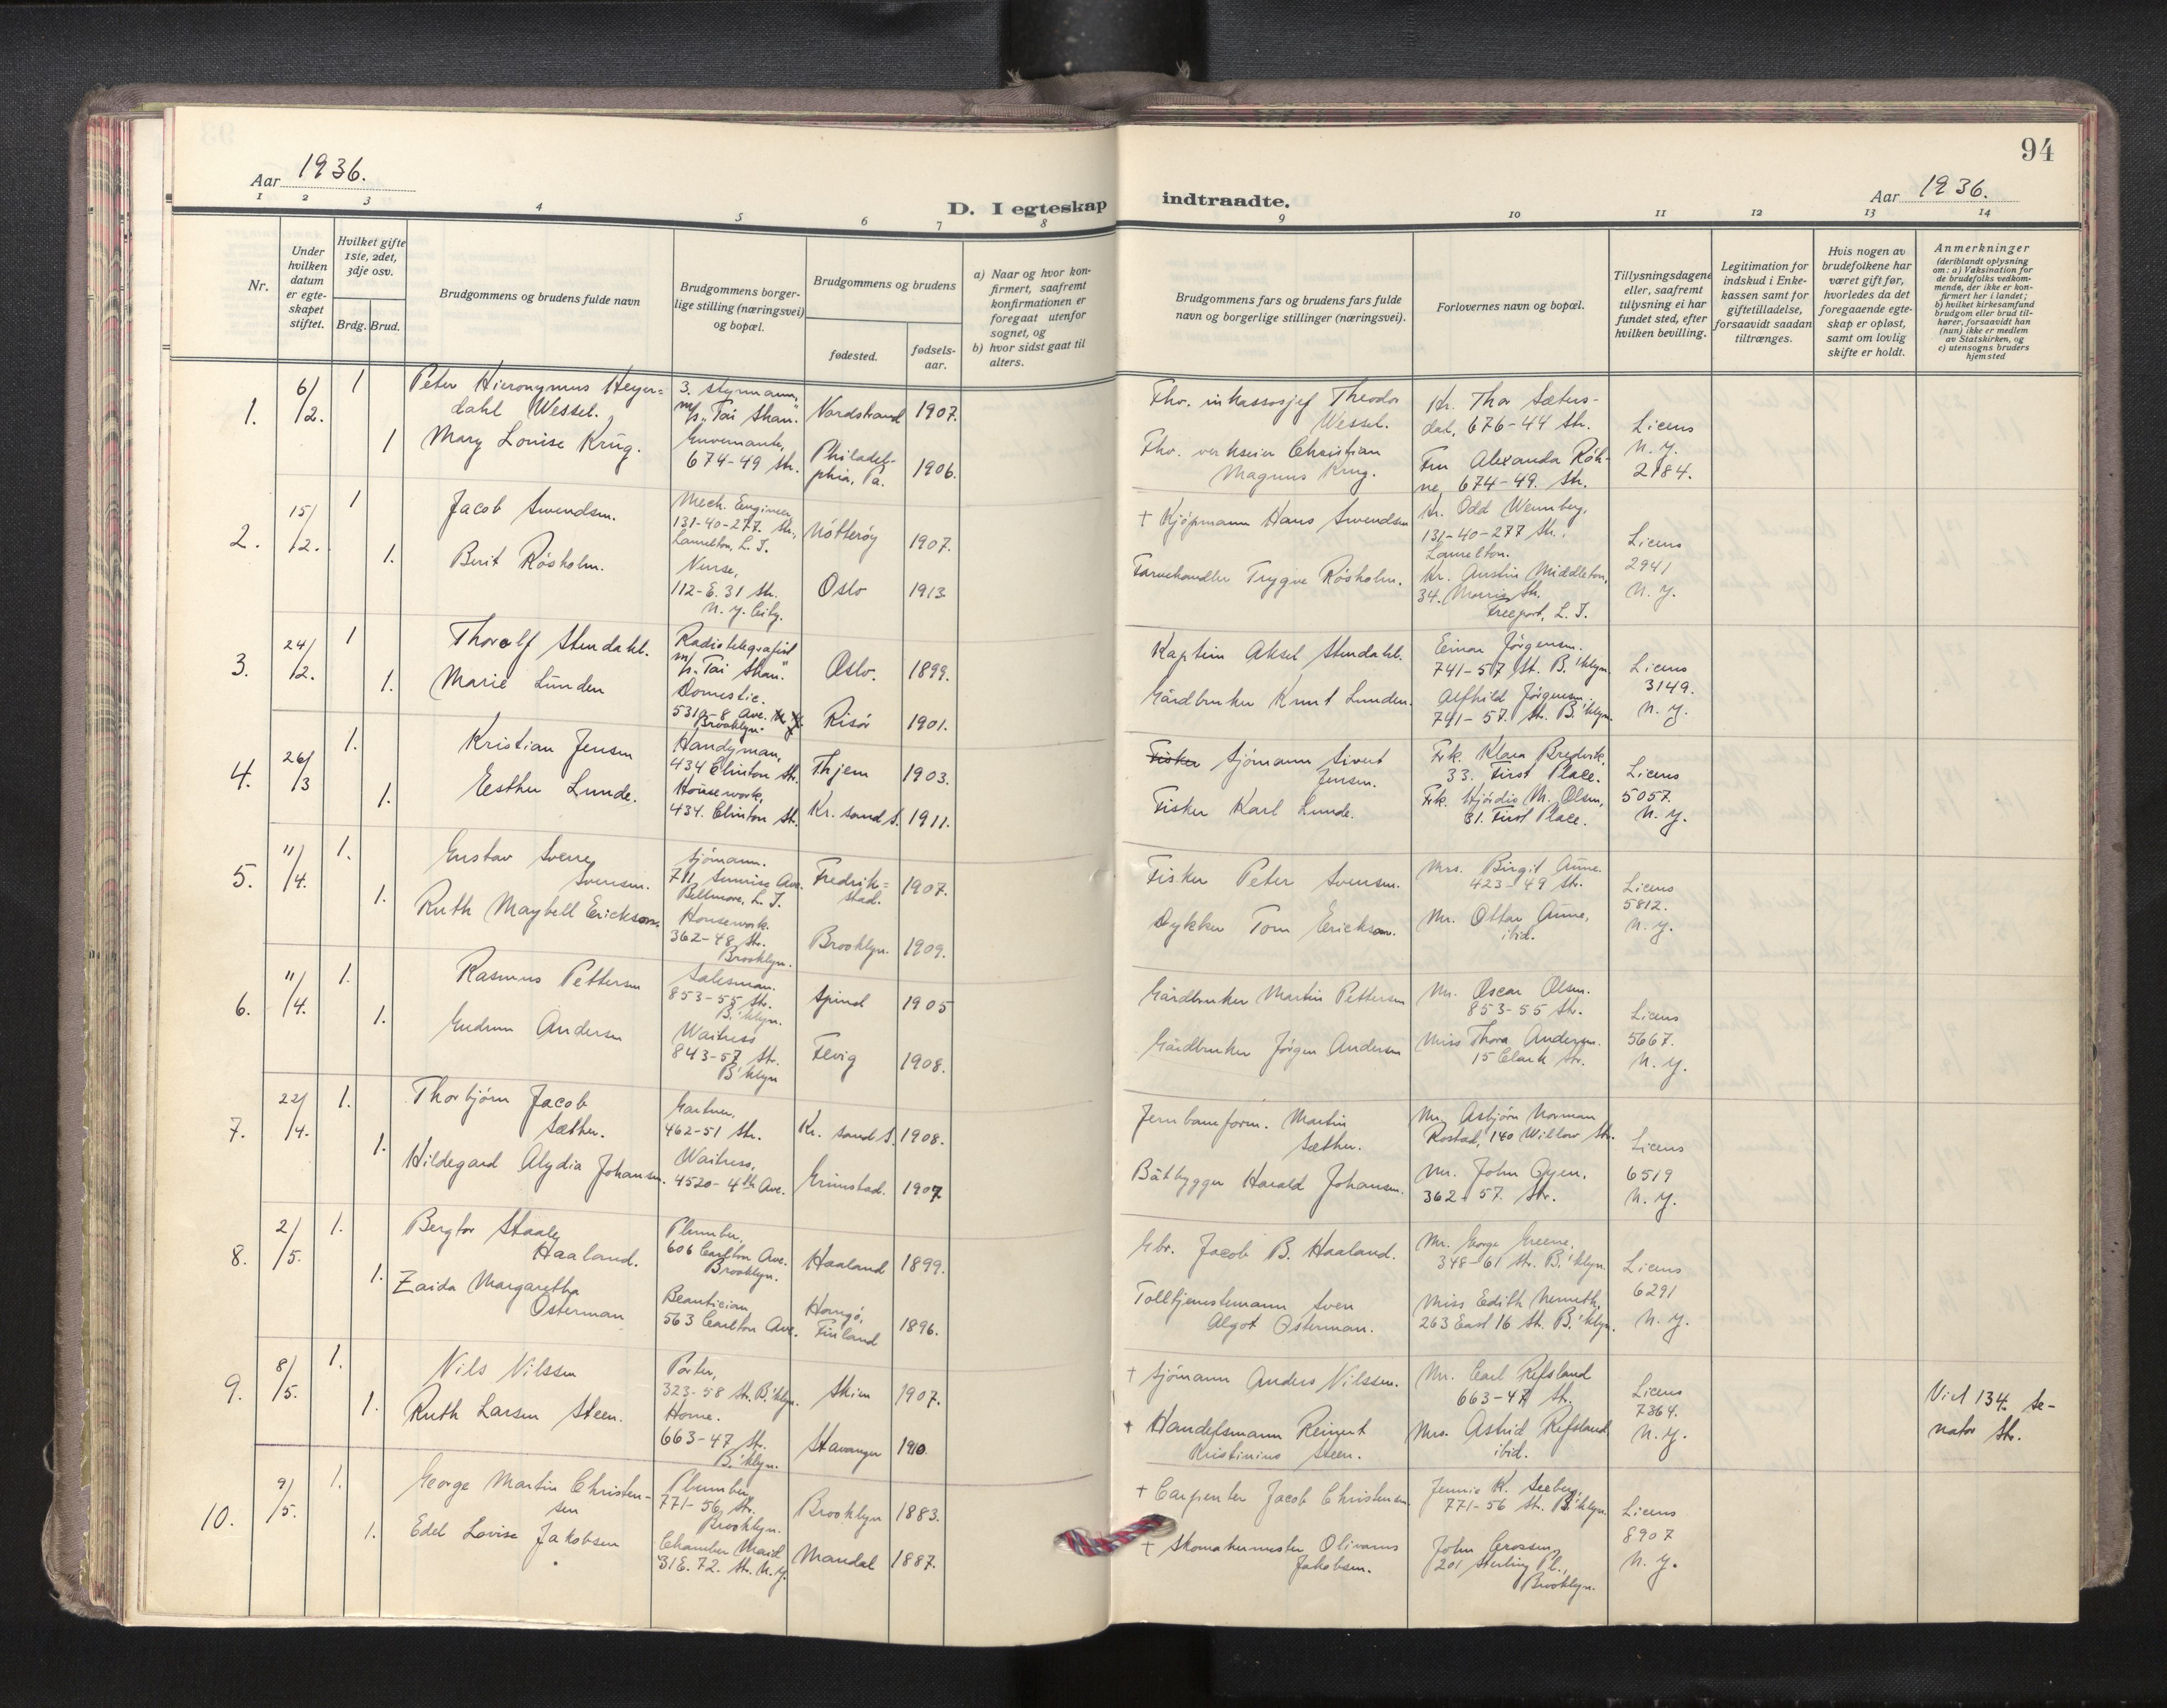 94
Aar 1936.
D. I egteskap indtraadte.
Aar 1936.
1 2 3 4 5 6 7 8 9 10 11 12 13 14
Nr.
Under
hvilken
datum
er egte-
skapet
stiftet.
Hvilket gifte
1ste, 2det,
3dje osv.
Brdg. Brud.
Brudgommens og brudens fulde navn
Brudgommens borger-
lige stilling (næringsvei)
og bopæl.
Brudgommens og brudens
fødested.
fødsels-
aar.
a) Naar og hvor kon-
firmert, saafremt
konfirmationen er
foregaat utenfor
sognet, og
b) hvor sidst gaat til
alters.
Brudgommens fars og brudens fars fulde
navn og borgerlige stillinger (næringsvei).
Forlovernes navn og bopæl.
Tillysningsdagene
eller, saafremt
tillysning ei har
fundet sted, efter
hvilken bevilling.
Legitimation for
indskud i Enke-
kassen samt for
giftetilladelse,
forsaavidt saadan
tiltrænges.
Hvis nogen av
brudefolkene har
været gift før,
hvorledes da det
foregaaende egte-
skap er opløst,
samt om lovlig
skifte er holdt.
Anmerkninger
(deriblandt oplysning
om: a) Vaksination for
de brudefolks vedkom-
mende, der ikke er kon-
firmert her i landet;
b) hvilket kirkesamfund
brudgom eller brud til-
hører, forsaavidt han
(hun) ikke er medlem
av Statskirken, og
c) utensogns bruders
hjemsted
1.
6/
/2.
1
Peter Hieronymus Heyer=
dahl Wessel.
3. styrmann,
m/s. "Tai Shan".
Nordstrand 1907.
Fhv. inkassosjef Theodor
Wessel.
Hr. Thor Sæters-
dal, 676-44 Str.
1
Mary Louise Krug.
Guvernante,
674-49 Str.
Philadel-
phia, Pa.
1906.
Fhv. verkseier Christian
Magnus Krug.
Fru Alexanda Røh-
ne, 674-49. Str.
Licens
N.Y.
2184.
2.
15/
/2.
1
Jacob Svendsen.
Mech. Engineer,
131-40-277. Str.,
Laurelton, L.I.
Nötteröy
1907.
+ Kjöpmann Hans Svendsen
Hr. Odd Wennberg,
131-40-277 Str.,
Laurelton.
1.
Berit Rösholm.
Nurse,
112-E. 31 Str.
N.Y. City.
Oslo
1913
Farvehandler Trygve Rösholm.
Hr. Austin Middleton,
34. Morris Str.
Freeport, L.I.
Licens
2941
N.Y.
3.
24/
/2.
1
Thorolf Stendahl.
Radiotelegrafist
m/s. "Tai Shan."
Oslo.
1899.
Kaptein Aksel Stendahl.
Einar Jörgensen.
741-57 St. B.'klyn
1.
Marie Lunden
Domestic.
5319-8 Ave. N.Y.
Brooklyn.
Risör
1901.
Gårdbruker Knut Lunden.
Alfhild Jörgensen.
741-57. St. B.'klyn.
Licens
3149.
N.Y.
4.
26/
/3
1.
Kristian Jensen
Handyman,
434 Clinton St.
Thjem
1903.
Fisker Sjömann Sivert
Jensen.
Frk. Klara Bredvik.
33. First Place.
1.
Esther Lunde.
Housework,
434. Clinton St.
Kr. sand S.
1911.
Fisker Karl Lunde.
Frk. Hjördis M. Olsen,
31. First Place.
Licens
5057.
N.Y.
5.
11/
/4.
1.
Gustav Sverre
Svensen.
Sjömann.
711 Sunrise Ave.
Bellmore, L.I.
Fredrik=
stad.
1907.
Fisker Peter Svensen.
Mrs. Birgit Aune.
423-49 Str.
1.
Ruth Maybell Erickson.
Housework.
362-48 Str.
Brooklyn.
Brooklyn.
1909.
Dykker Tom Erickson.
Mr. Ottar Aune,
ibid.
Licens
5812.
N.Y.
6.
11/
/4.
1.
Rasmus Pettersen
Salesman.
853-55 Str.
B.'klyn.
Spind
1905
Gårdbruker Martin Pettersen
Mr. Oscar Olsen.
853-55 Str.
1.
Gudrun Andersen
Waitress
843-57 Str.
B'klyn
Fevig
1908.
Gårdbruker Jörgen Andersen
Miss Thora Andersen.
15 Clark Str.
Licens
5667.
N.Y.
7.
22/
/4.
1.
Thorbjörn Jacob
Sæther.
Gartner.
462-51 Str.
Kr. sand S.
1908.
Jernbaneform. Martin
Sæther.
Mr. Asbjörn Norman
Rostad, 140 Willow Str.
1.
Hildegard Alydia Johansen.
Waitress,
4520-4th Ave.
Grimstad.
1907
Båtbygger Harald Johansen.
Mr. John Öyen.
362-57. Str.
Licens
6519
N.Y.
8.
2/
/5.
1.
Bergtor Staale
Haaland.
Plumber,
606 Carlton Ave.
Brooklyn.
Haaland
1899.
Gbr. Jacob B. Haaland.
Mr. George Greene,
348-61 Str. B.'klyn.
1.
Zaida Margaretha
Österman
Beautician,
563 Carlton Ave.
Hangö,
Finland
1896.
Tolltjenestemann Sven
Algot Österman.
Miss Edith Nemeth,
263 East 16 St. B.'klyn.
Licens
6291
N.Y.
9.
8/
/5.
1.
Nils Nilssen
Porter,
323-58 Str. B.'klyn.
Skien
1907.
+ Sjömann Anders Nilssen.
Mr. Carl Refsland
663-47 St.
1.
Ruth Larsen Steen.
Home.
663-47 Str.
B.'klyn.
Stavanger
1910.
+ Handelsmann Reinert
Kristinius Steen.
Mrs. Astrid Refsland
ibid.
Licens
7364.
N.Y.
Viet 134. Se-
nator Str.
10.
9/
/5.
1.
George Martin Christen-
sen
Plumber,
771-56 Str.
Brooklyn.
Brooklyn
1883.
+ Carpenter Jacob Christensen
Jennie K. Seeberg,
771-56 St. B.'klyn.
1.
Edel Lovise Jakobsen
Chamber Maid
31 E. 72. Str. N.Y.
Mandal
1887.
+ Skomakermester Olivarius
Jakobsen.
John Crossen,
201 Sterling Pl.,
Brooklyn.
Licens
8907
N.Y.